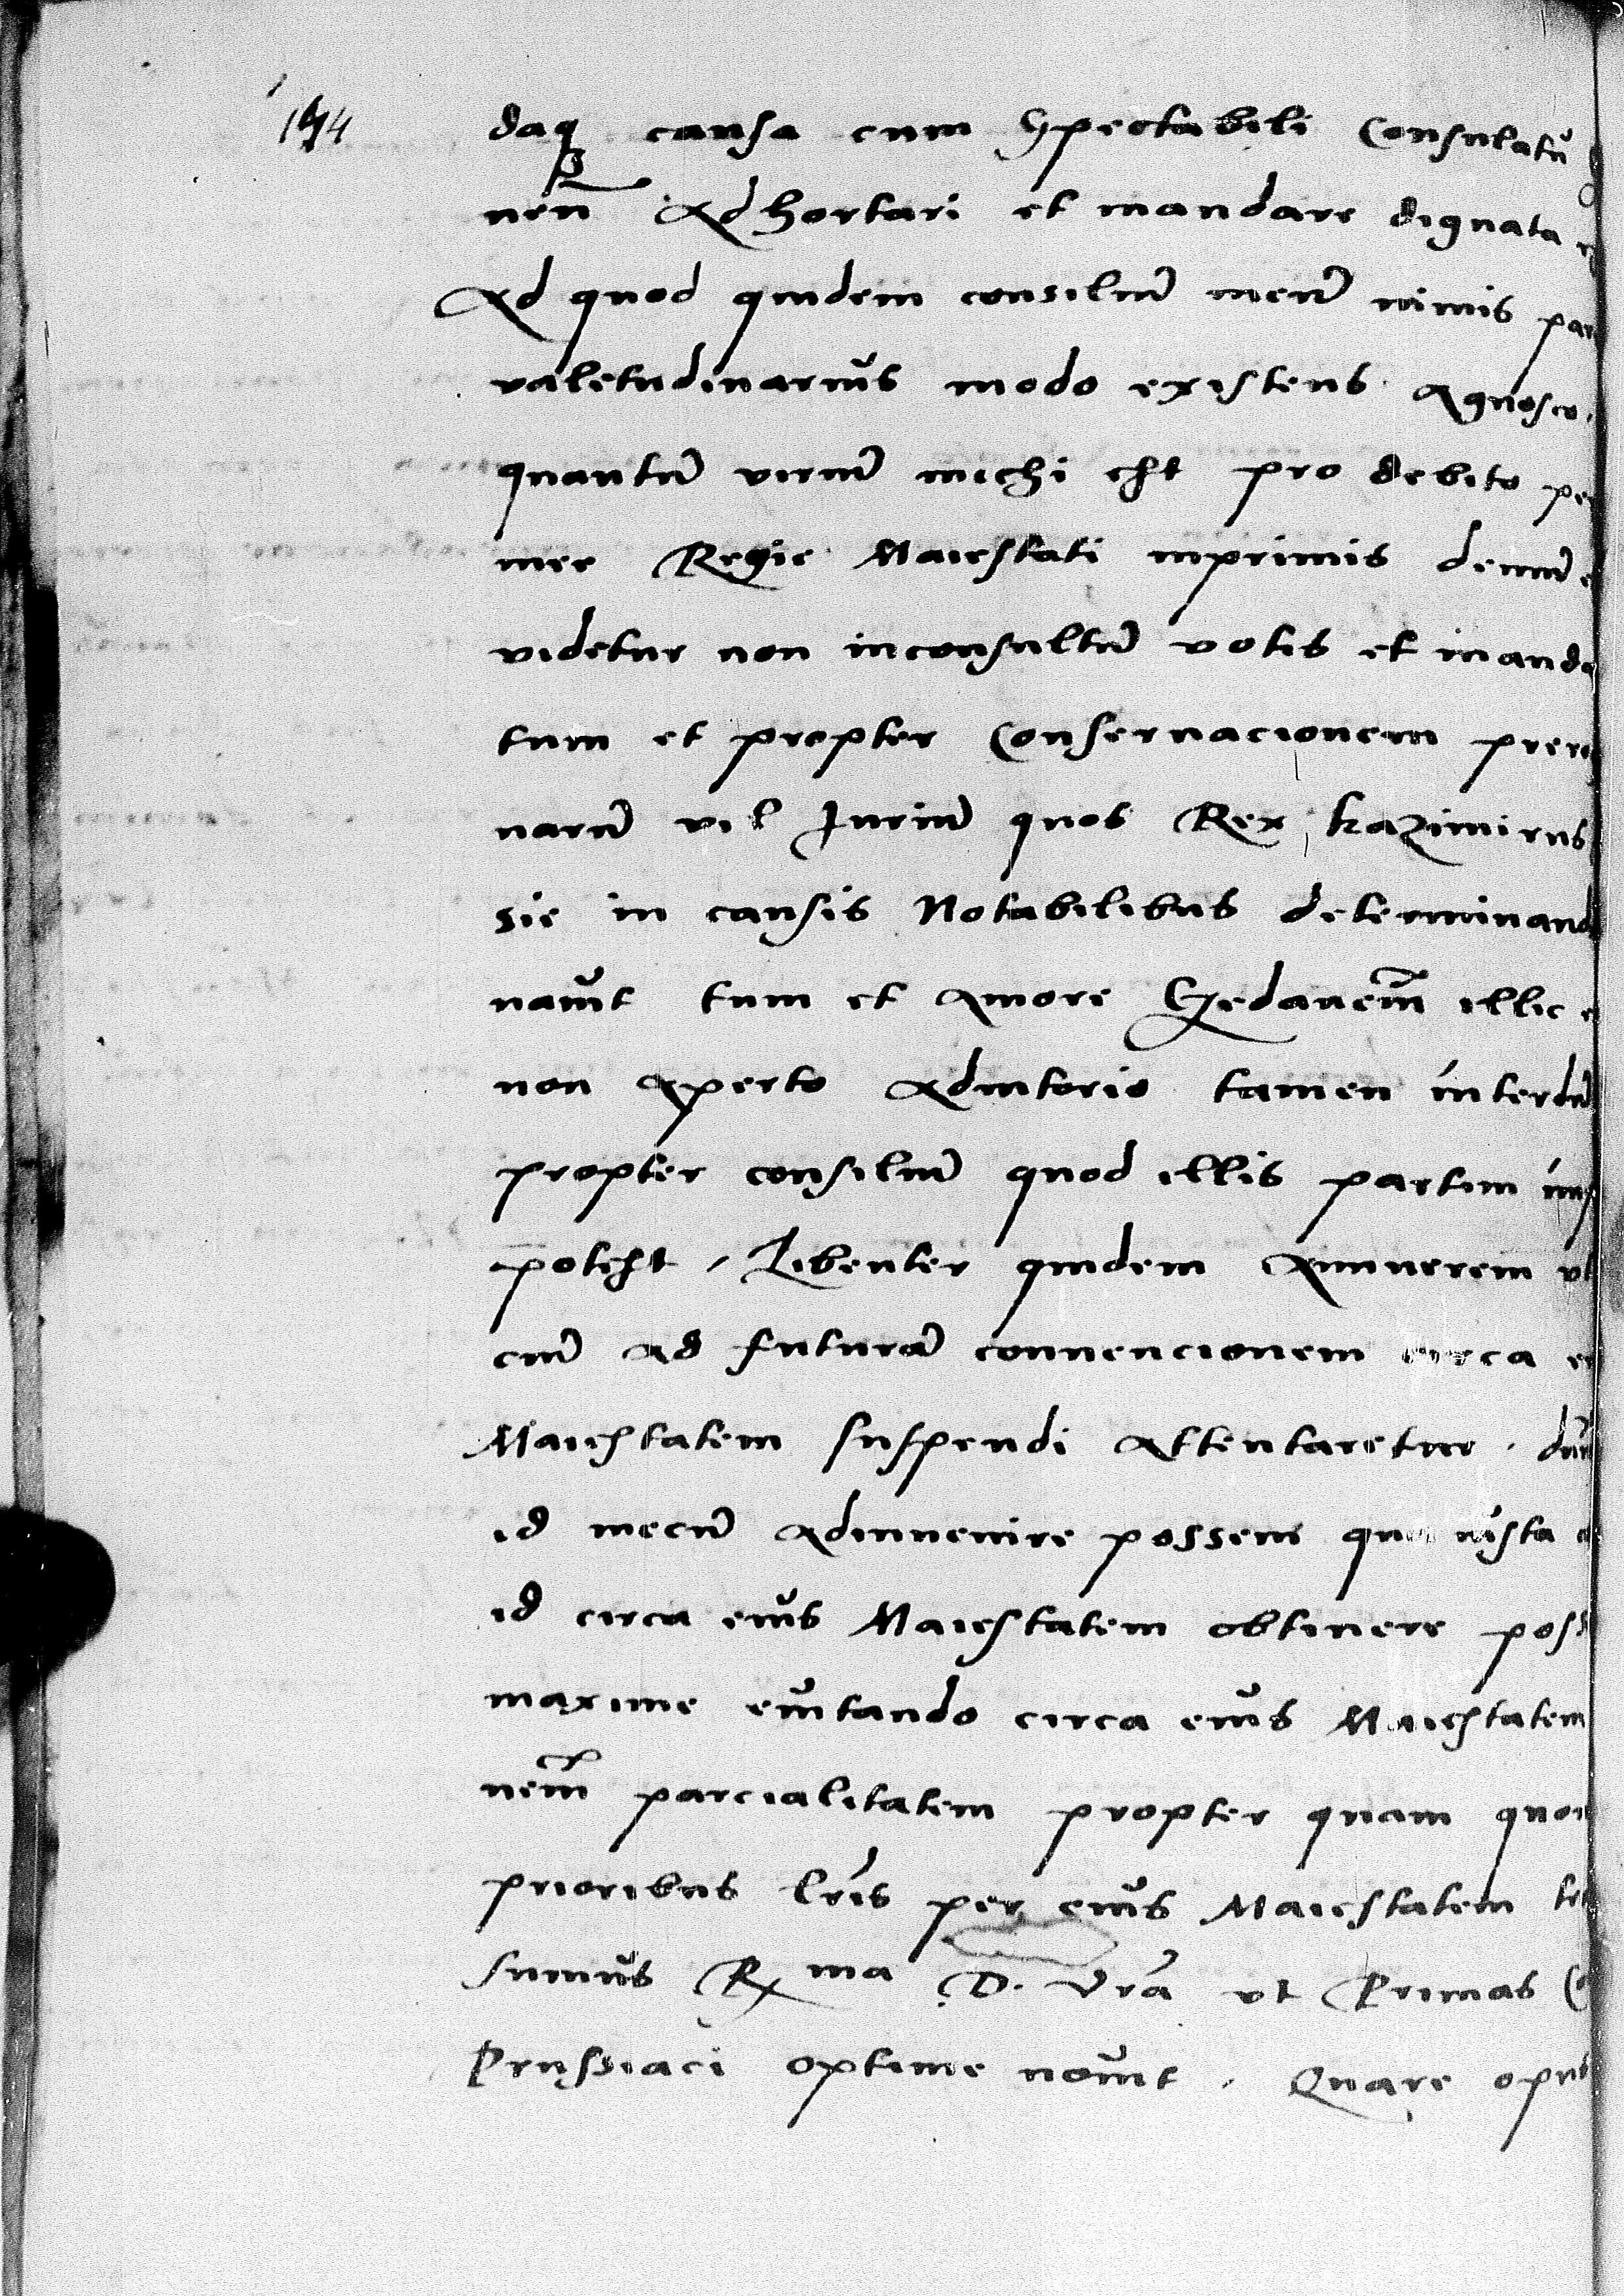 daq causa cum Spectabili Consulatu
nen̄ Adhortari et mandare dignata
Ad quod quidem consiliū meū nimis par
valetudinariūs modo existens Agnosco.
quantū viriū michi est pro debito pe
mee Regie Maiestati inprimis demū
videtur non inconsultū votis et manda
tum et propter Conservacionem prero
narū vel Juriū quos Rex kazimirus
sie in causis Notabilibus determinand
navit tum et Amore Gedanem̄ illic
non Aperto Adiutorio tamen interdū
propter consiliū quod illis partim
potest / Libenter quidem Annuerem vt
cum ad futurā convencionem circa
Maiestatem suspendi Attentaretur .
id mecū Adinvenire possem ista
id circa eiūs Maiestatem obtinere poss
maxime evitando circa eiūs Maiestatem
nem̄ parcialitatem propter quam
prioribus lrīs per eiūs Maiestatem
sumūs R ma D. Vrā vt Primas
Prussiaci optime novit . Quare opus